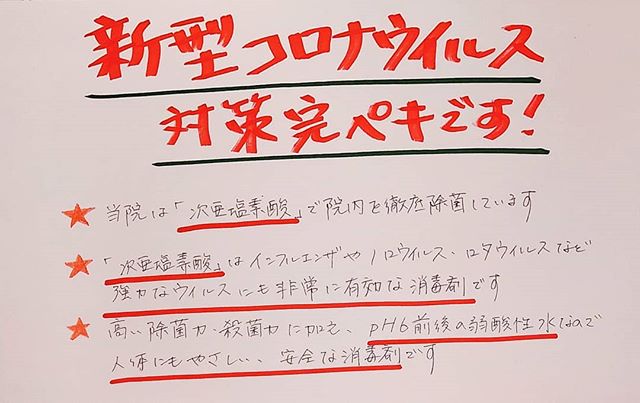 新型コロナウイルス
対策完ペキです!
★ 当院は「次亜塩素酸」で院内を徹底除菌しています
★ 「次亜塩素酸」はインフルエンザやノロウイルス、ロタウイルスなど
強力なウイルスにも非常に有効な消毒剤です
★ 高い除菌力・殺菌力に加え、pH6前後の弱酸性水なので
人体にもやさしい、安全な消毒剤です